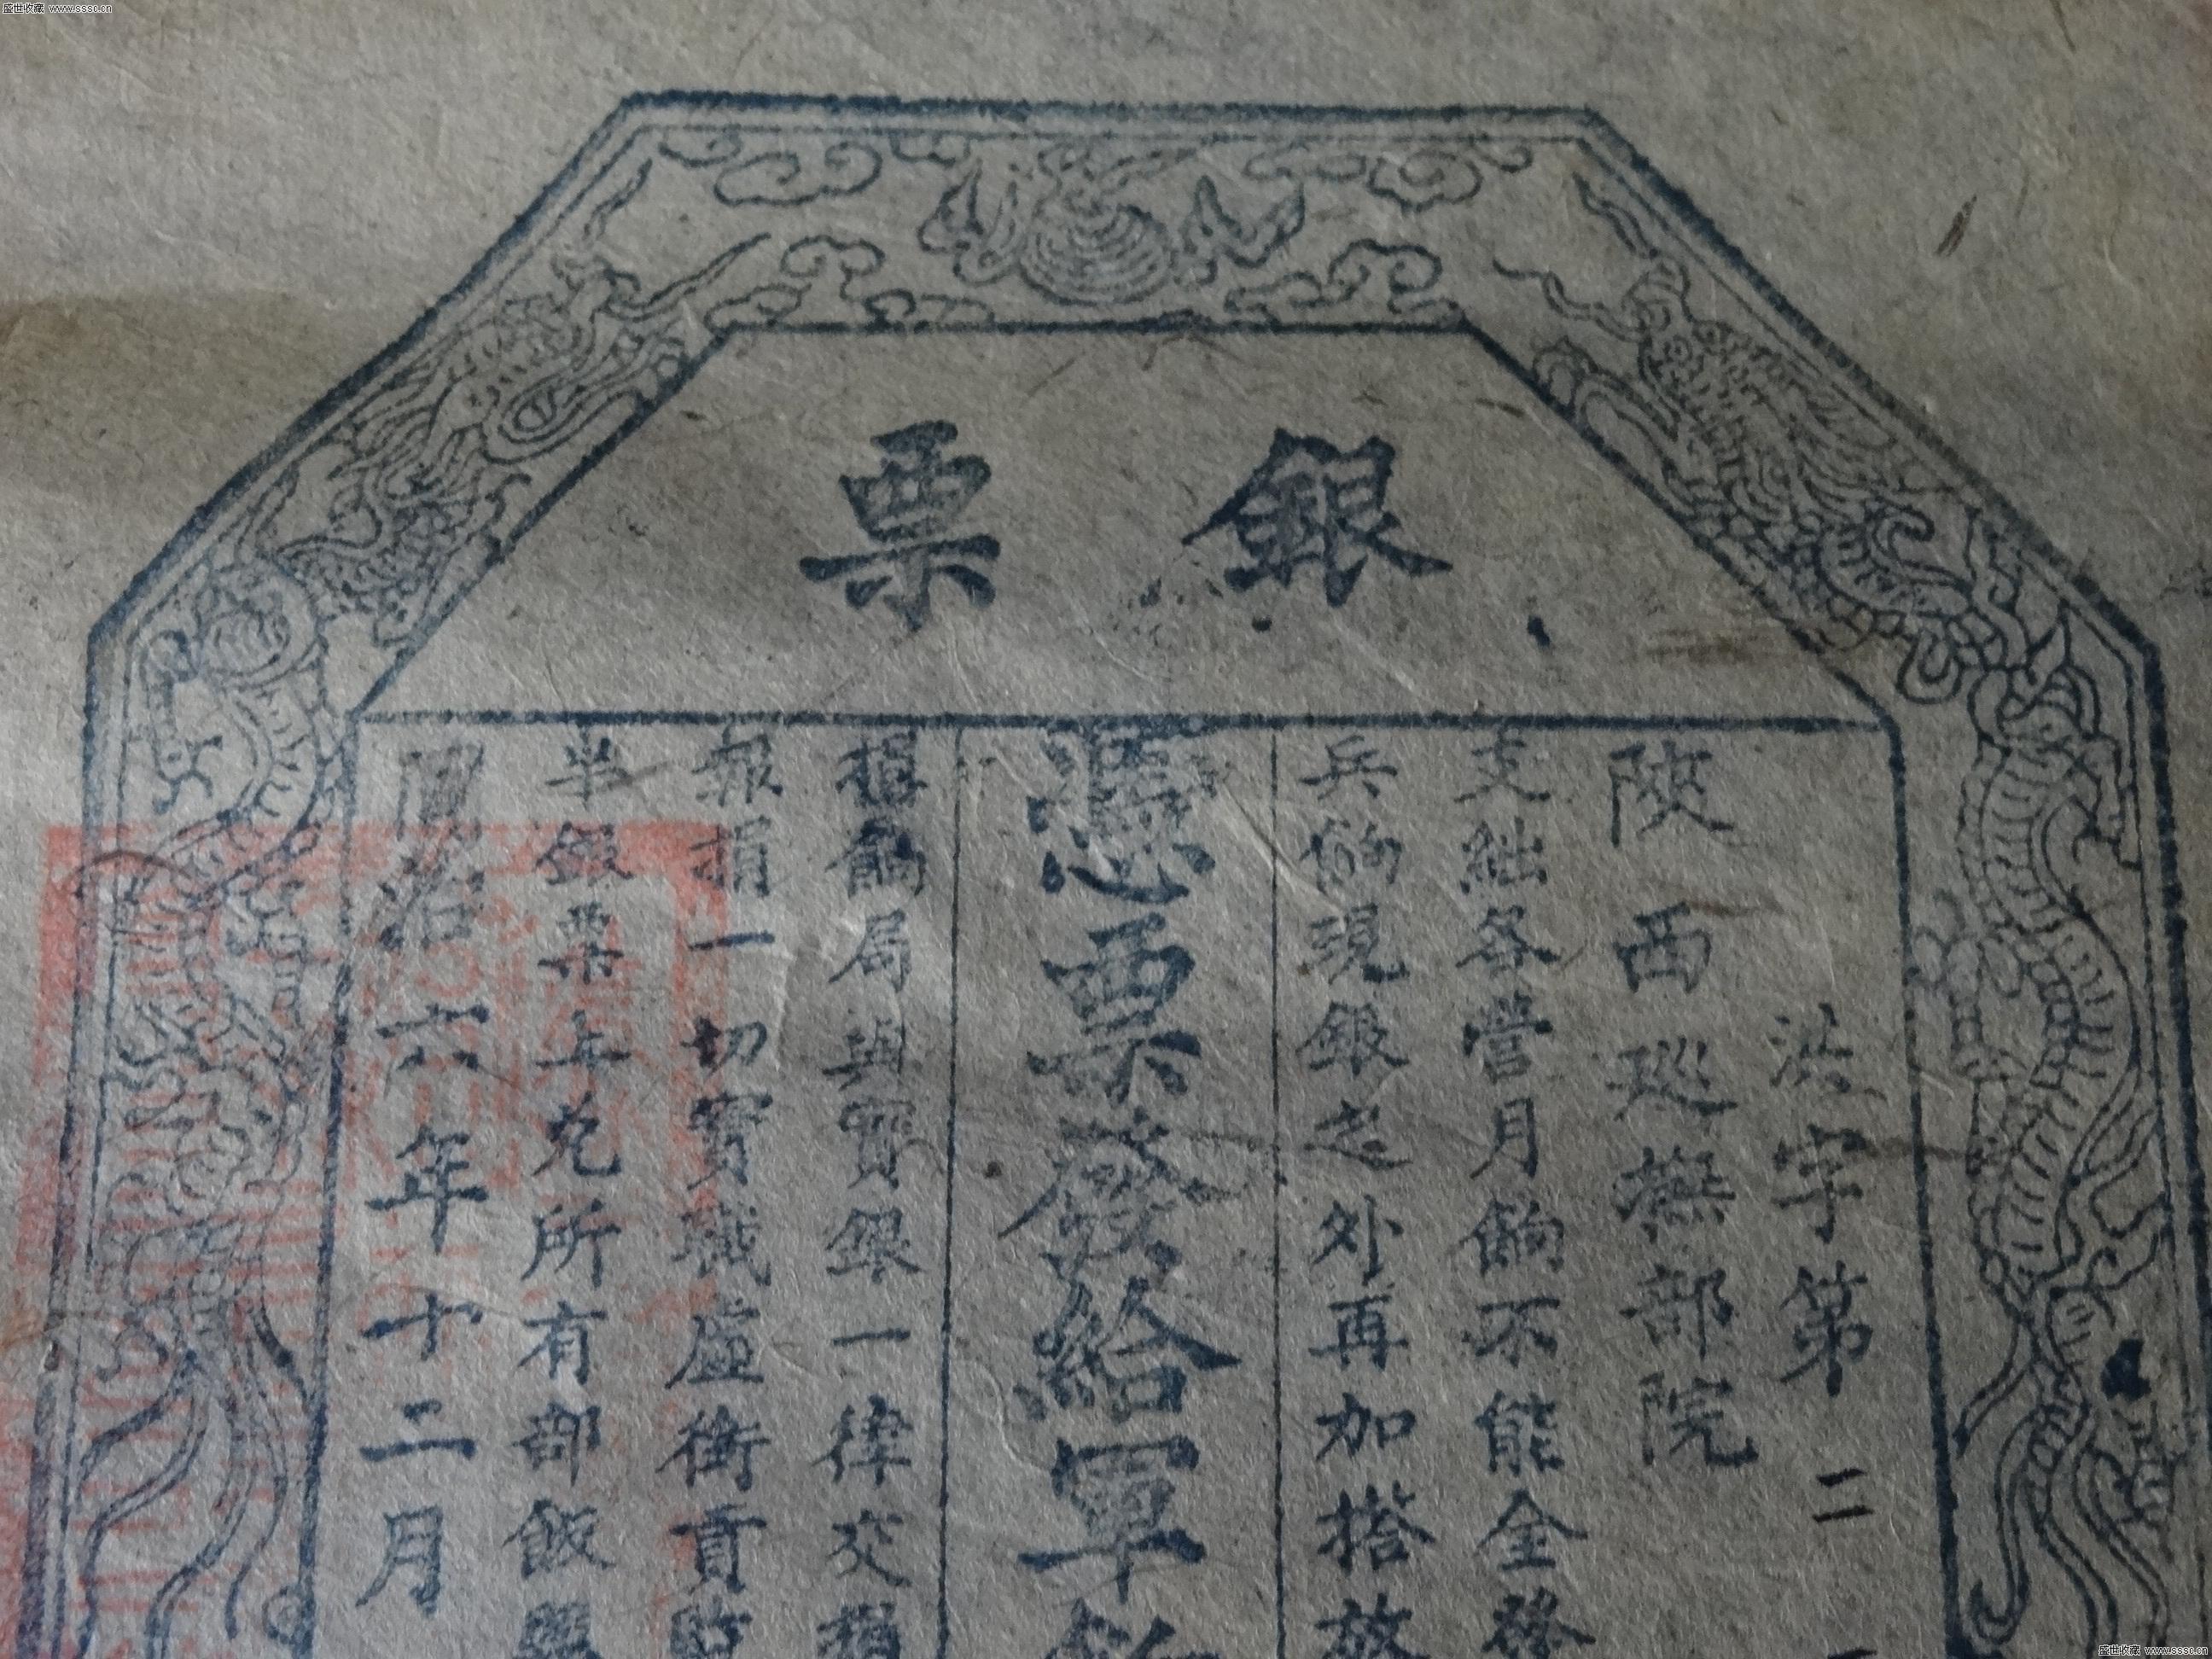 盛世收藏 www.sssc.cn
銀票
洪字第二
陝西巡撫部院
支絀各營月餉不能全發
兵餉現銀之外再加搭放
憑票發給軍餉
捐餉局與實銀一律交捐
報捐一切實職虛銜貢監
半銀票上兌所有部飯照
同治六年十二月
盛世收藏 www.sssc.cn